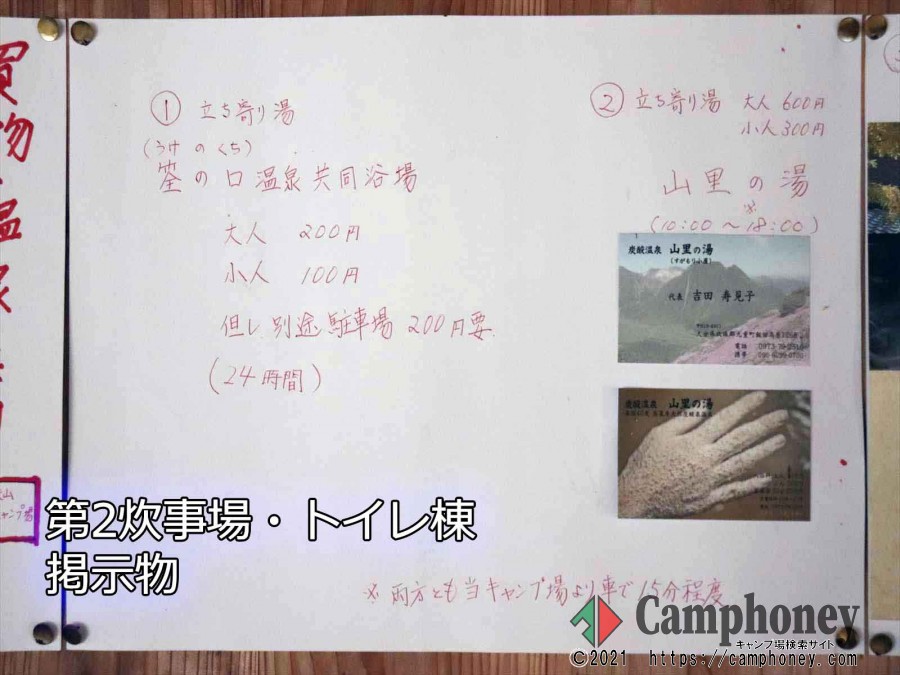 買物・温泉
① 立ち寄り湯
(うけのくち)
筌の口温泉共同浴場
大人 200円
小人 100円
但し別途駐車場 200円要
(24時間)
② 立ち寄り湯 大人 600円
小人 300円
山里の湯
※
(10:00～18:00)
炭酸温泉 山里の湯
(すがもり小屋)
代表 吉田 寿見子
電話
携帯
炭酸温泉 山里の湯
※両方とも当キャンプ場より車で15分程度
第2炊事場・トイレ棟
掲示物
Camphoney
キャンプ場検索サイト
©2021 https://camphoney.com